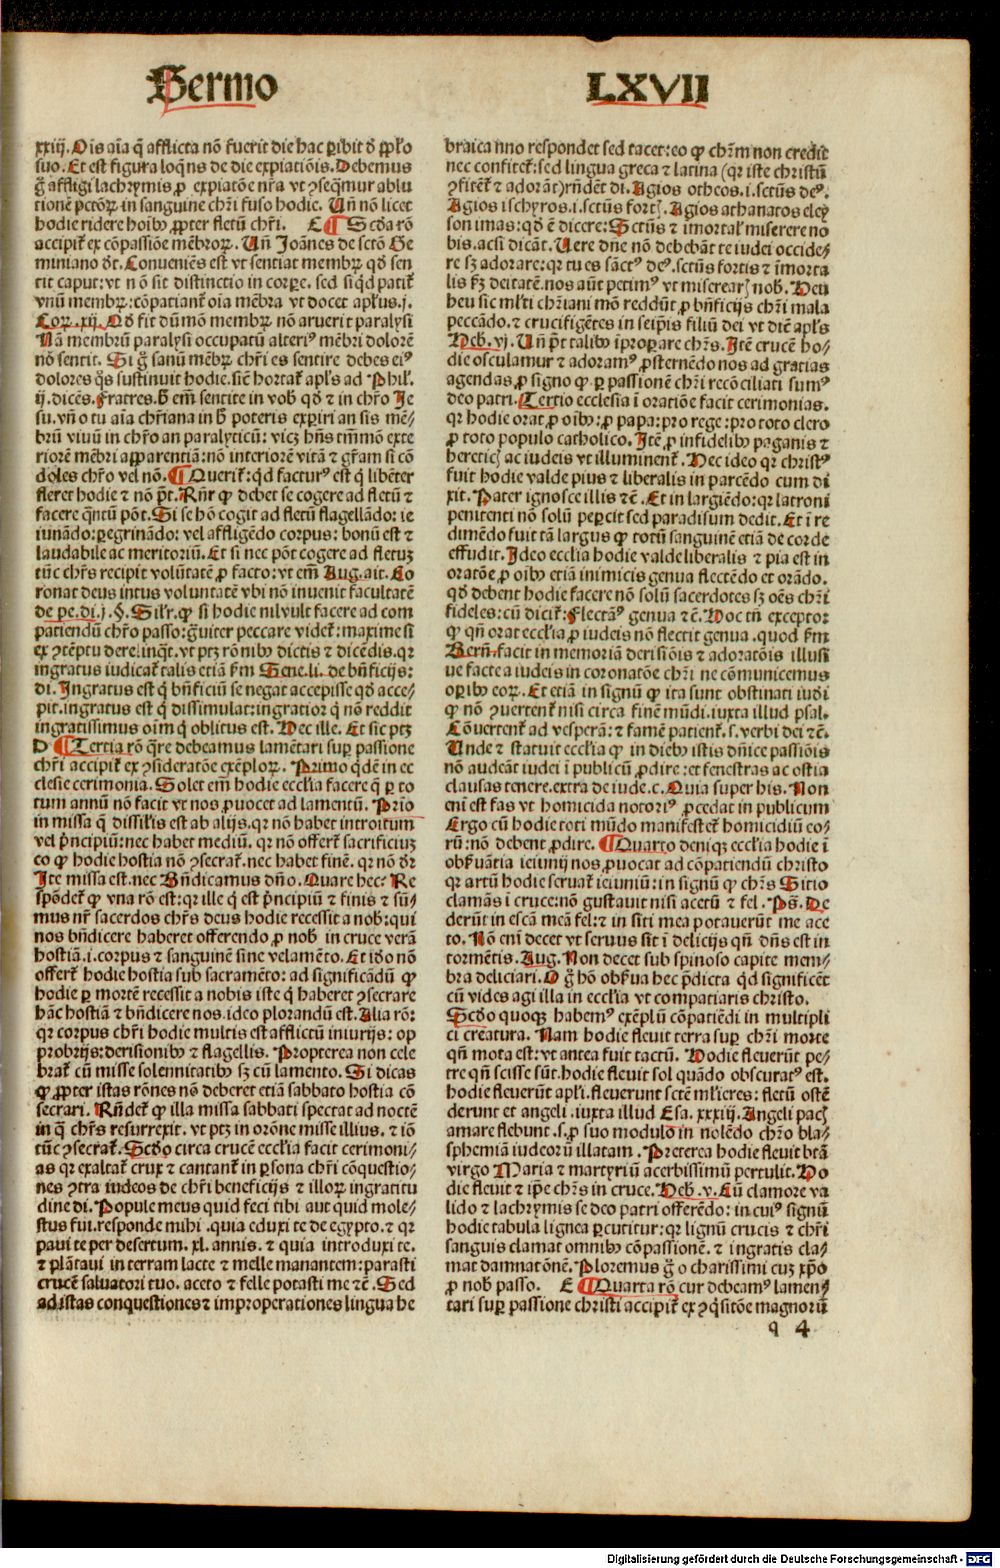 Sermo LXVII
xxiij. Ois aīa q̄ afflicta nō fuerit die hac ꝑibit d̄ ppl̄o
suo. Et est figura loqn̄s de die expiatiōis. Debemus
g̊ affligi lachrymis ꝓ expiatōe nr̄a vt ꝯseq̄mur ablu
tionē pctōꝝ in sanguine chr̄i fuso hodie. Vn̄ nō licet
hodie ridere hoibꝰ ꝓpter fletū chr̄i. E ¶ Scd̄a rō
accipit̄ ex cōpassiōe mēbroꝝ. Vn̄ Joānes de sctō Ge
miniano dt̄. Conueniēs est vt sentiat membꝝ qd̄ sen
tit caput: vt nō sit distinctio in corꝑe. sed si qd̄ patit̄
vnū membꝝ: cōpatiant̄ oīa mēbra vt docet apl̄us .j.
Coꝝ. xij. Qd̄ fit dū mō membꝝ nō aruerit paralysi
Nā membrū paralysi occupatū alteriꝰ mēbri dolorē
nō sentit. Si g̊ sanū mēbꝝ chr̄i es sentire debes eiꝰ
dolores q̄s sustinuit hodie. sic̄ hortat̄ apl̄us ad Phil̄.
ij. dicēs. Fratres. h̄ em̄ sentite in vob̄ qd̄ ⁊ in chr̄o Je
su. vn̄ o tu aīa chr̄iana in h̄ poteris exꝑiri an sis mē⸗
brū viuū in chr̄o an paralyticū: vicꝫ hn̄s tm̄mō exte
riorē mēbri apparentiā: nō interiorē vitā ⁊ gr̄am si cō
doles chr̄o vel nō. ¶ Querit̄: qd̄ facturꝰ est q̄ libēter
fleret hodie ⁊ nō pōt. Rn̄r ꝙ debet se cogere ad fletū ⁊
facere qn̄tū pōt. Si se hō cogit ad fletū flagellādo: ie
iunādo: ꝑegrinādo: vel affligēdo corpus: bonū est ⁊
laudabile ac meritoriū. Et si nec pōt cogere ad fletuꝫ
tūc chr̄s recipit volūtatē ꝓ facto: vt em̄ Aug. ait. Co
ronat deus intus voluntatē vbi nō inuenit facultatē
de pe. di. j. §. Sil̄r. ꝙ si hodie nil vult facere ad com
patiendū chr̄o passo: g̊uiter peccare videt̄: maxime si
ex ꝯtēptu derelinqt̄. vt ptꝫ rōnibꝰ dictis ⁊ dicēdis. qꝛ
ingratus iudicat̄ talis etiā km̄ Sene. li. de bn̄ficijs:
di. Ingratus est q̄ bn̄ficiū se negat accepisse qd̄ acce⸗
pit. ingratus est q̄ dissimulat: ingratior q̄ nō reddit
ingratissimus oīm q̄ oblitus est. Hec ille. Et sic ptꝫ
D ¶ Tertia rō q̄re debeamus lamētari suꝑ passione
chr̄i accipit̄ ex ꝯsideratōe exēploꝝ. Primo qd̄ē in ec
clesie cerimonia. Solet em̄ hodie ecclīa facere q̄ ꝑ to
tum annū nō facit vt nos ꝓuocet ad lamentū. Prīo
in missa q̄ dissil̄is est ab alijs. qꝛ nō habet introitum
vel p̄ncipiū: nec habet mediū. qꝛ nō offert̄ sacrificiuꝫ
eo ꝙ hodie hostia nō ꝯsecrat̄. nec habet finē. qꝛ nō dr̄
Ite missa est. nec Bn̄dicamus dn̄o. Quare hec: Re
spōdet̄ ꝙ vna rō est: qꝛ ille q̄ est p̄ncipiū ⁊ finis ⁊ sū⸗
mus nr̄ sacerdos chr̄s deus hodie recessit a nob̄: qui
nos bn̄dicere haberet offerendo ꝓ nob̄ in cruce verā
hostiā .i. corpus ⁊ sanguinē sine velamēto. Et iō nō
offert̄ hodie hostia sub sacramēto: ad significādū ꝙ
hodie ꝑ mortē recessit a nobis iste q̄ haberet ꝯsecrare
hāc hostiā ⁊ bn̄dicere nos. ideo plorandū est. Alia rō:
qꝛ corpus chr̄i hodie multis est afflictū iniurijs: op
probrijs: derisionibꝰ ⁊ flagellis. Propterea non cele
brat̄ cū misse solennitatibꝰ sꝫ cū lamento. Si dicas
ꝙ ꝓpter istas rōnes nō deberet etiā sabbato hostia cō
secrari. Rn̄det̄ ꝙ illa missa sabbati spectat ad noctē
in q̄ chr̄s resurrexit. vt ptꝫ in orōne misse illius. ⁊ iō
tūc ꝯsecrat̄. Scd̄o circa crucē eccl̄ia facit cerimoni⸗
as qꝛ exaltat̄ crux ⁊ cantant̄ in ꝑsona chr̄i cōquestio⸗
nes ꝯtra iudeos de chr̄i beneficijs ⁊ illoꝝ ingratitu
dine di. Popule meus quid feci tibi aut quid mole⸗
stus fui. responde mihi .quia eduxi te de egypto. ⁊ qꝛ
paui te per desertum. xl. annis. ⁊ quia introduxi te.
⁊ plātaui in terram lacte ⁊ melle manantem: parasti
crucē saluatori tuo. aceto ⁊ felle potasti me ⁊c̄. Sed
ad istas conquestiones ⁊ improperationes lingua he
braica n̄no respondet sed tacet: eo ꝙ chr̄m non credit
nec confitet̄: sed lingua greca ⁊ latina (qꝛ iste christū
ꝯfitēt̄ ⁊ adorāt) rn̄dēt di. Agios otheos .i. sctūs deꝰ.
Agios ischyros .i. sctūs fort̄. Agios athanatos eley
son imas: qd̄ ē dicere: Sctūs ⁊ imortal̄ miserere no
bis. acsi dicāt. Uere dn̄e nō debebāt te iudei occide⸗
re sꝫ adorare: qꝛ tu es sanctꝰ deꝰ. sctūs fortis ⁊ īmorta
lis km̄ deitatē. nos aūt petimꝰ vt miserear̄ nob̄. Heu
heu sic ml̄ti chr̄iani mō reddūt ꝓ bn̄ficijs chr̄i mala
peccādo. ⁊ crucifigētes in seip̄is filiū dei vt dic̄ apl̄s
Heb̄. vj. Vn̄ p̄t talibꝰ īproꝑare chr̄s. Itē crucē ho⸗
die osculamur ⁊ adoramꝰ ꝓsternēdo nos ad gratias
agendas ꝓ signo ꝙ ꝑ passionē chr̄i recōciliati sumꝰ
deo patri. Tertio ecclesia ī oratiōe facit cerimonias.
qꝛ hodie orat ꝓ oibꝰ: ꝓ papa: pro rege: pro toto clero
ꝓ toto populo catholico. Itē ꝓ infidelibꝰ paganis ⁊
hereticꝭ ac iudeis vt illuminent̄. Hec ideo qꝛ christꝰ
fuit hodie valde pius ⁊ liberalis in parcēdo cum di
xit. Pater ignosce illis ⁊c̄. Et in largiēdo: qꝛ latroni
penitenti nō solū peꝑcit sed paradisum dedit. Et ī re
dimēdo fuit tā largus ꝙ totū sanguinē etiā de corde
effudit. Ideo eccl̄ia hodie valde liberalis ⁊ pia est in
oratōe ꝓ oibꝰ etiā inimicis genua flectēdo et orādo.
qd̄ debent hodie facere nō solū sacerdotes sꝫ oēs chr̄i
fideles: cū dicit̄: Flectāꝰ genua ⁊c̄. Hoc tn̄ exceptor
ꝙ qn̄ orat eccl̄ia ꝓ iudeis nō flectit genua. quod km̄
Bern̄. facit in memoriā derisiōis ⁊ adoratōis illusi
ue facte a iudeis in coronatōe chr̄i ne cōmunicemus
oꝑibꝰ eoꝝ. Et etiā in signū ꝙ ita sunt obstinati iudi
ꝙ nō ꝯuertent̄ nisi circa finē mūdi. iuxta illud psal.
Cōuertent̄ ad vesperā: ⁊ famē patient̄. s. verbi dei ⁊c̄.
Unde ⁊ statuit eccl̄ia ꝙ in diebꝰ istis dn̄ice passiōis
nō audeāt iudei ī publicū ꝓdire: et fenestras ac ostia
clausas tenere. extra de iude. c. Quia super his. Non
eni est fas vt homicida notoriꝰ ꝓcedat in publicum
Ergo cū hodie toti mūdo manifestet̄ homicidiū eo⸗
rū: nō debent ꝓdire. ¶ Quarto deniqꝫ ecclesia hodie ī
obk̄uātia ieiunij nos ꝓuocat ad cōpatiendū christo
qꝛ artū hodie seruat̄ ieiuniū: in signū ꝙ chr̄s Sitio
clamās ī cruce: nō gustauit nisi acetū ⁊ fel. Ps̄. De
derūt in escā meā fel: ⁊ in siti mea potauerūt me ace
to. Nō eni decet vt seruus sit ī delicijs qn̄ dn̄s est in
tormētis. Aug. Non decet sub spinoso capite mem⸗
bra deliciari. O g̊ hō obk̄ua hec p̄dicta qd̄ significēt
cū vides agi illa in eccl̄ia vt compatiaris christo.
Scd̄o quoqꝫ habemꝰ exēplū cōpatiēdi in multipli
ci creatura. Nam hodie fleuit terra suꝑ chr̄i morte
qn̄ mota est: vt antea fuit tactū. Hodie fleuerūt pe⸗
tre qn̄ scisse sūt. hodie fleuit sol quādo obscuratꝰ est.
hodie fleuerūt apl̄i. fleuerunt sctē ml̄ieres: fletū ostē
derunt et angeli .iuxta illud Esa. xxxiij. Angeli pacꝭ
amare flebunt .s. ꝓ suo modulo in nolēdo chr̄o bla⸗
sphemiā iudeorū illatam. Preterea hodie fleuit btā
virgo Maria ⁊ martyriū acerbissimū pertulit. Ho
die fleuit ⁊ ip̄e chr̄s in cruce. Heb̄. v. Cū clamore va
lido ⁊ lachrymis se deo patri offerēdo: in cuiꝰ signū
hodie tabula lignea ꝑcutitur: qꝛ lignū crucis ⁊ chr̄i
sanguis clamat omnibꝰ cōpassionē. ⁊ ingratis cla⸗
mat damnatōnē. Ploremus g̊ o charissimi cuꝫ xp̄o
ꝓ nob̄ passo. E ¶ Quarta rō cur debeamꝰ lamen⸗
tari suꝑ passione christi accipit̄ ex ꝯq̄sitōe magnorū
q 4
Digitalisierung gefördert durch die Deutsche Forschungsgemeinschaft - DFG